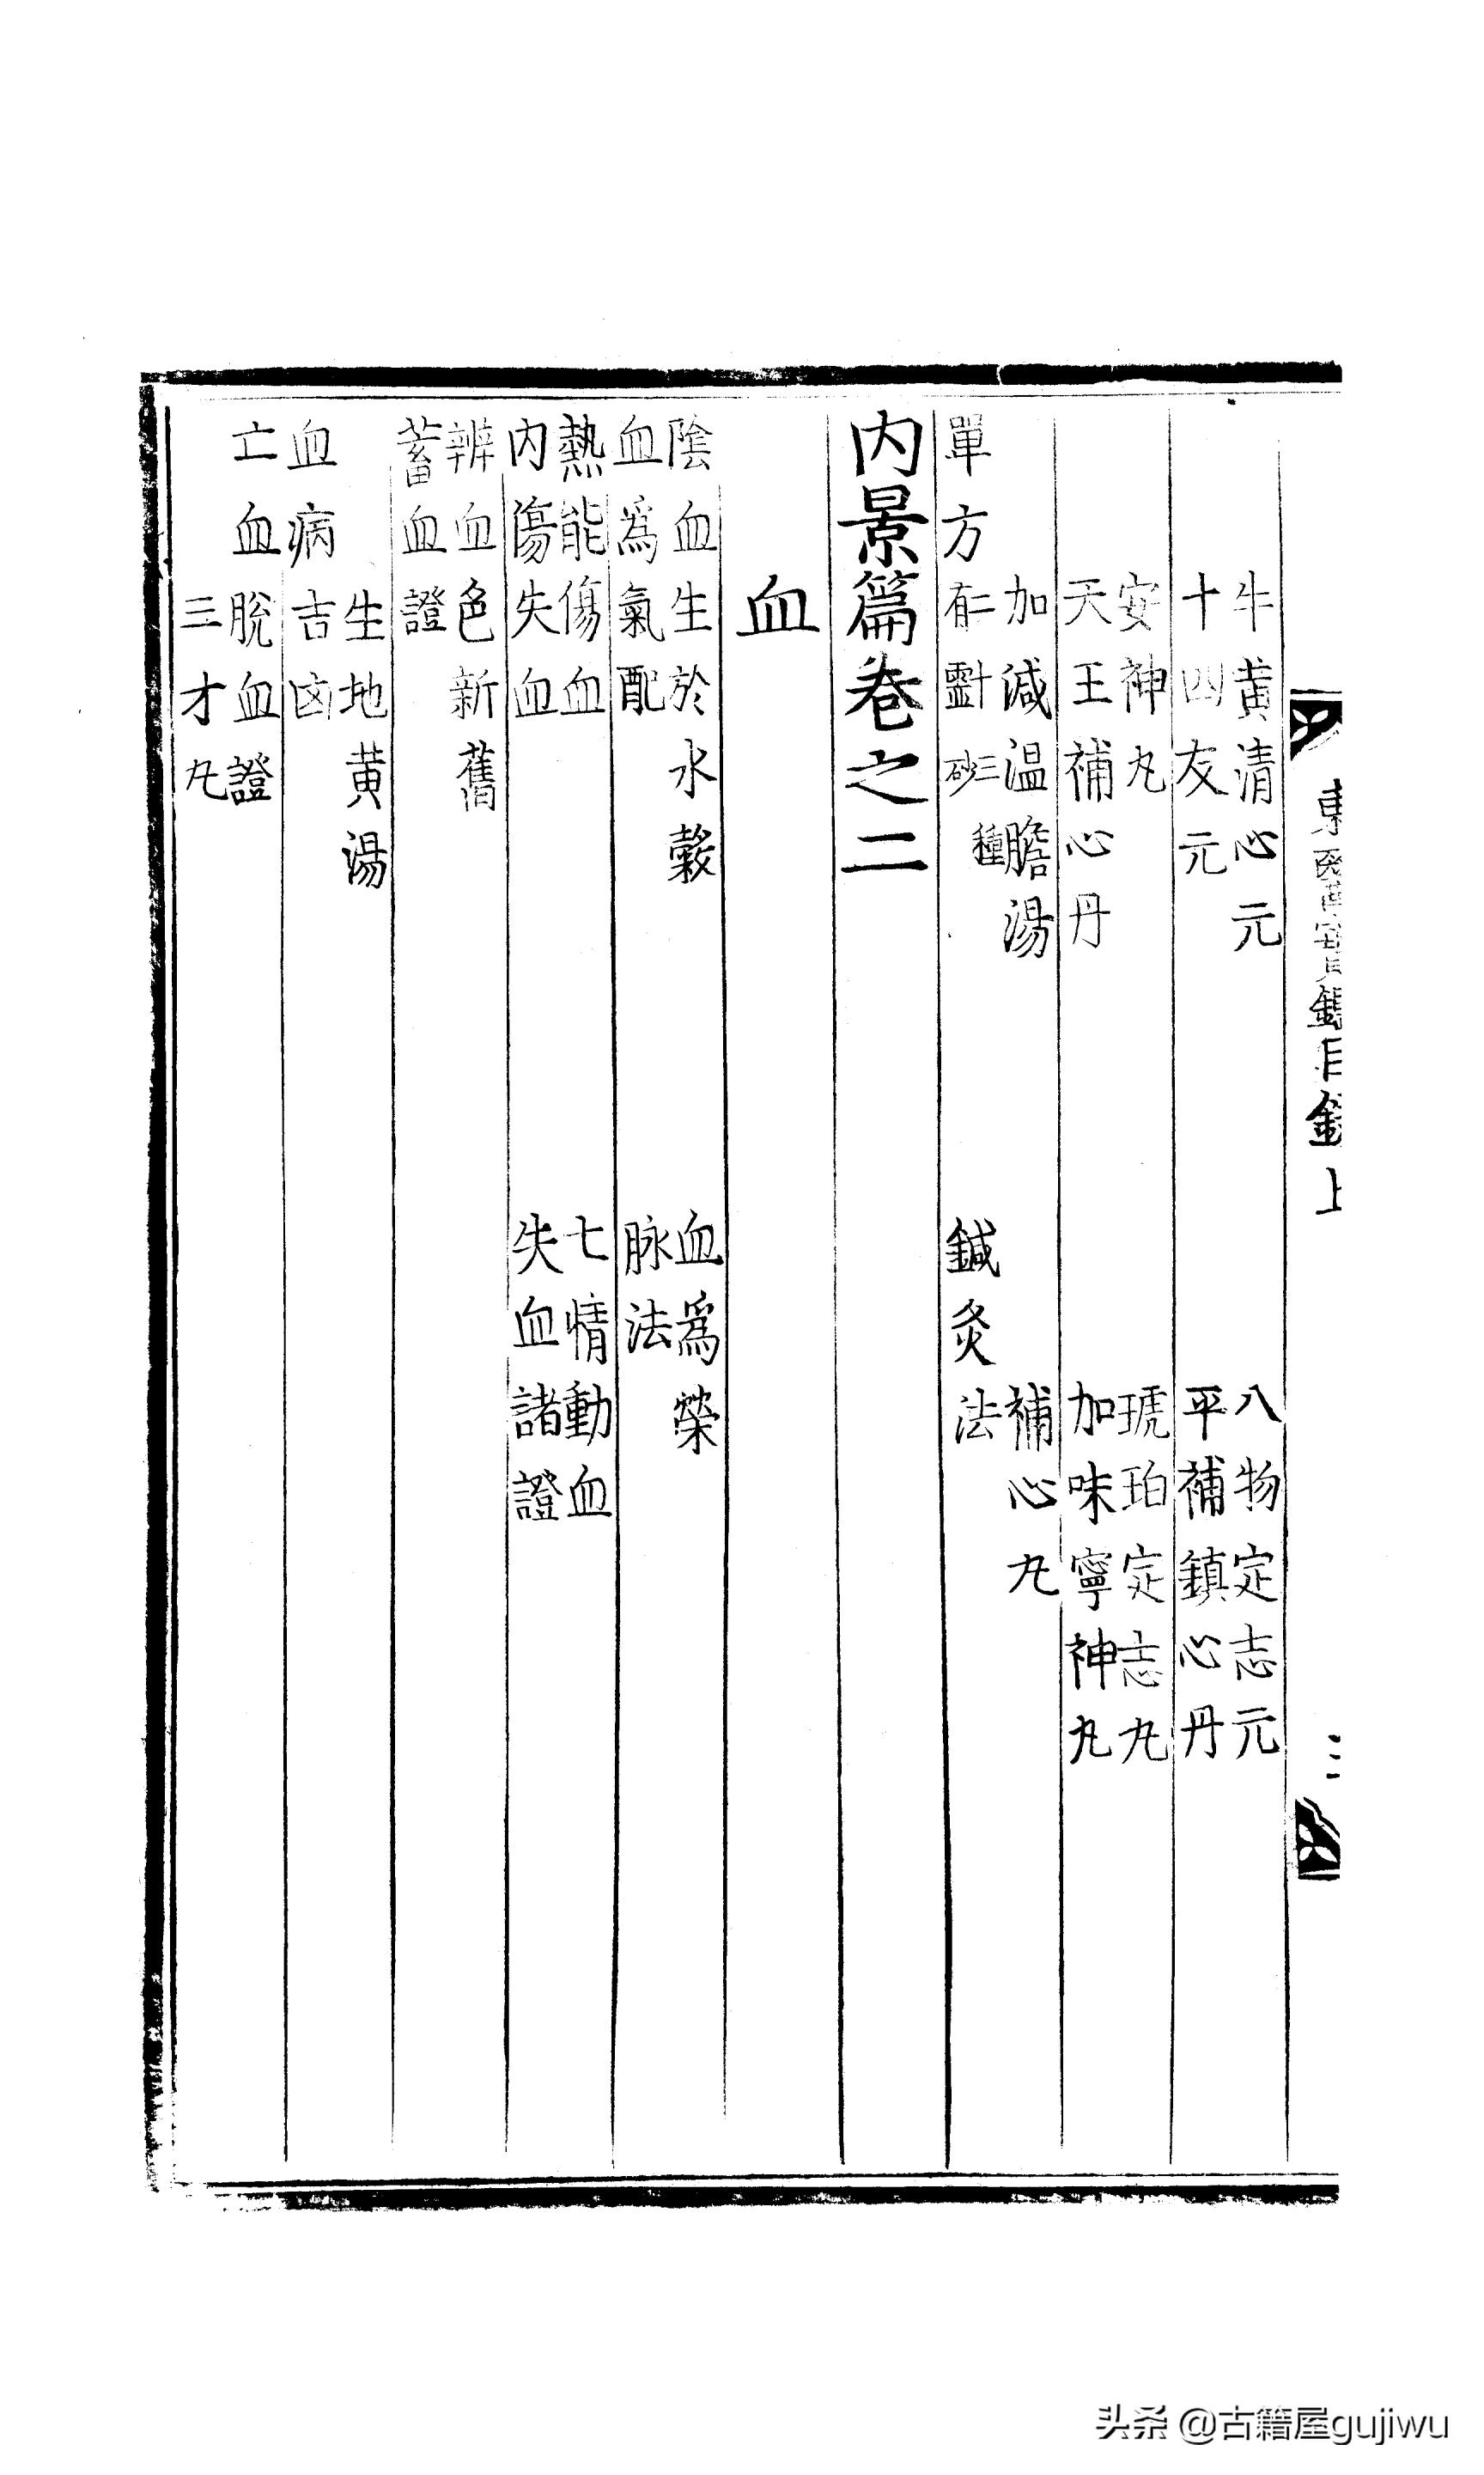 東醫寶鑑目錄上
牛黄清心元　八物定志元
十四友元　平補鎮心丹
安神丸　琥珀定志丸
天王補心丹　加味寧神丸
加減温膽湯　補心丸
單方　二十三種　有靈砂　鍼灸法
内景篇卷之二
血
陰血生於水穀　血爲榮
血爲氣配　脉法
熱能傷血　七情動血
内傷失血　失血諸證
辨血色新舊
蓄血證
生地黄湯
血病吉凶
亡血脫血證
三才丸
头条 @古籍屋gujiwu